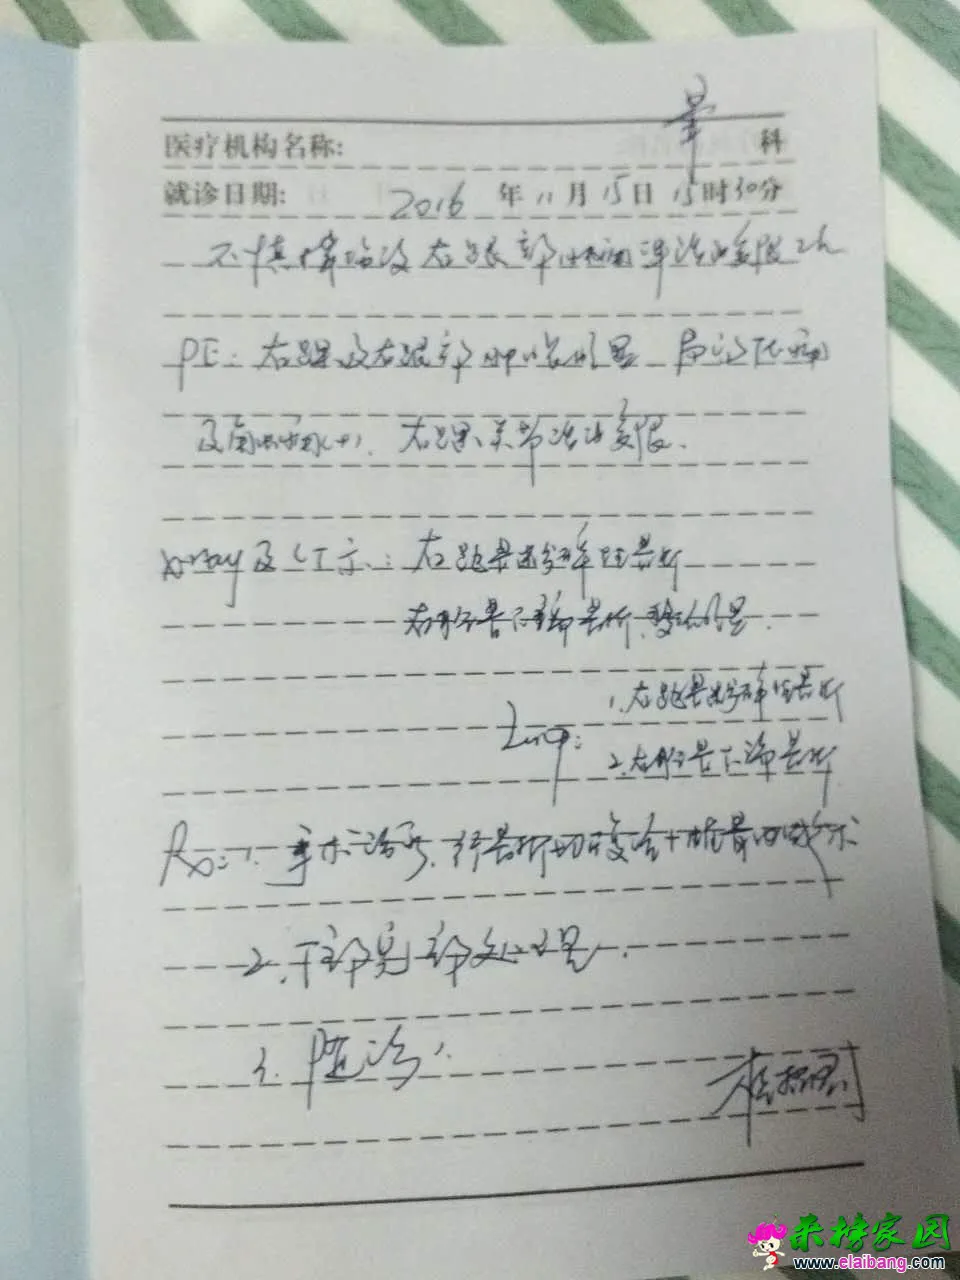 骨
医疗机构名称: 科
就诊日期: 2016 年 11 月 15 日 15 时 30 分
不慎摔伤后右跟部肿痛活动受限2h
PE: 右踝及右跟部肿胀明显 局部压痛
及叩击痛(+). 右踝关节活动受限.
X-ray及CT示: 右跟骨粉碎性骨折
右胫骨下端骨折,移位明显.
Imp: 1.右跟骨粉碎性骨折
2.右胫骨下端骨折
Rx: 1. 手术治疗,行骨折切开复位+植骨内固定术
2. 处理.
3. 随诊.
采榜家园
www.elaibang.com